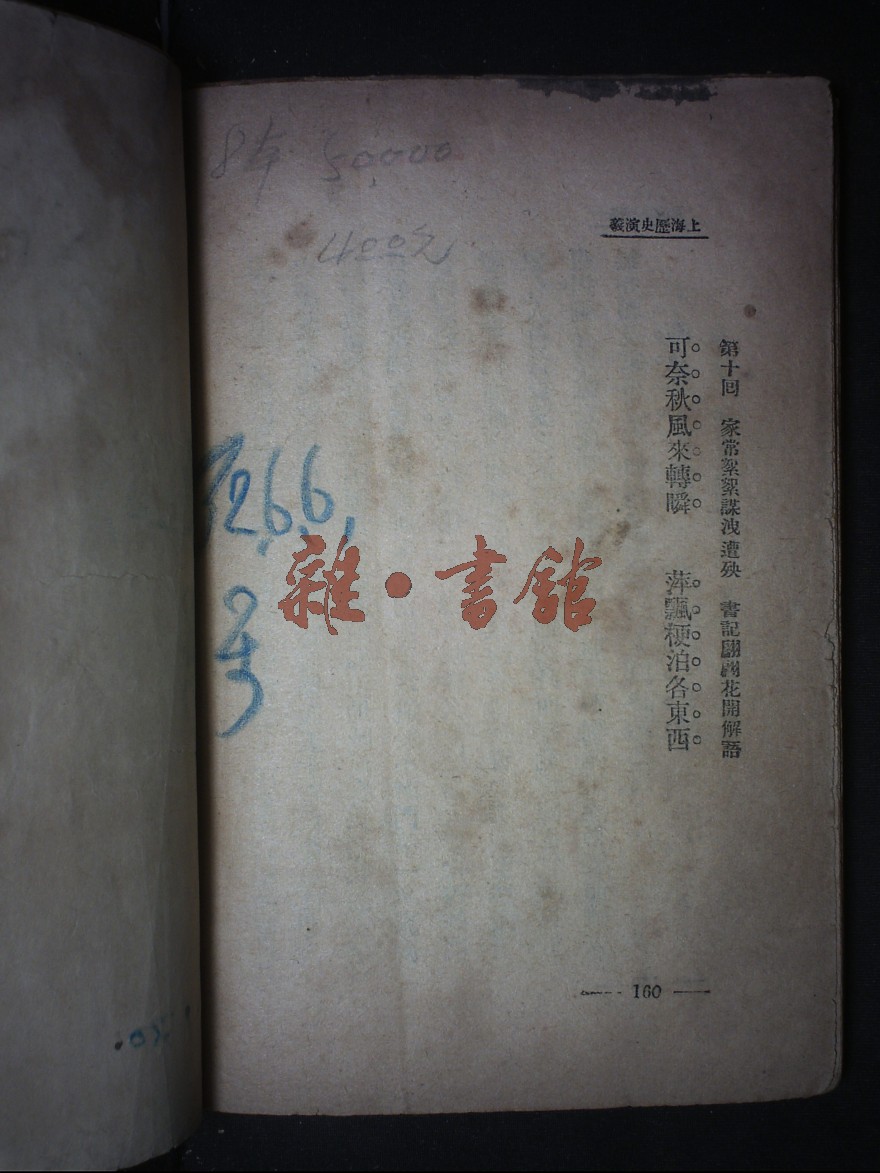 上海歷史演義
第十回　家常絮絮謀洩遭殃　書記翩翩花開解語
可奈秋風來轉瞬　萍飄梗泊各東西
160
50000
400元
3266
雜·書館